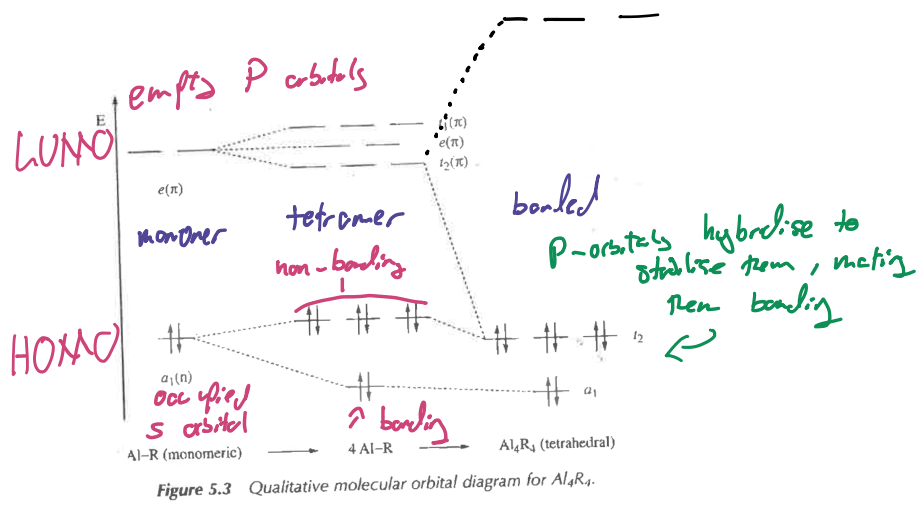 empty P orbitals
E
LUMO
t₁(π)
e(π)
t₂(π)
e(π)
monomer
tetramer
bonded
non-bonding
P-orbitals hybridise to
stabilise them, making
them bonding
HOMO
t₂
a₁(n)
a₁
occupied
s orbital
↑ bonding
Al–R (monomeric)
4 Al–R
Al₄R₄ (tetrahedral)
Figure 5.3 Qualitative molecular orbital diagram for Al₄R₄.